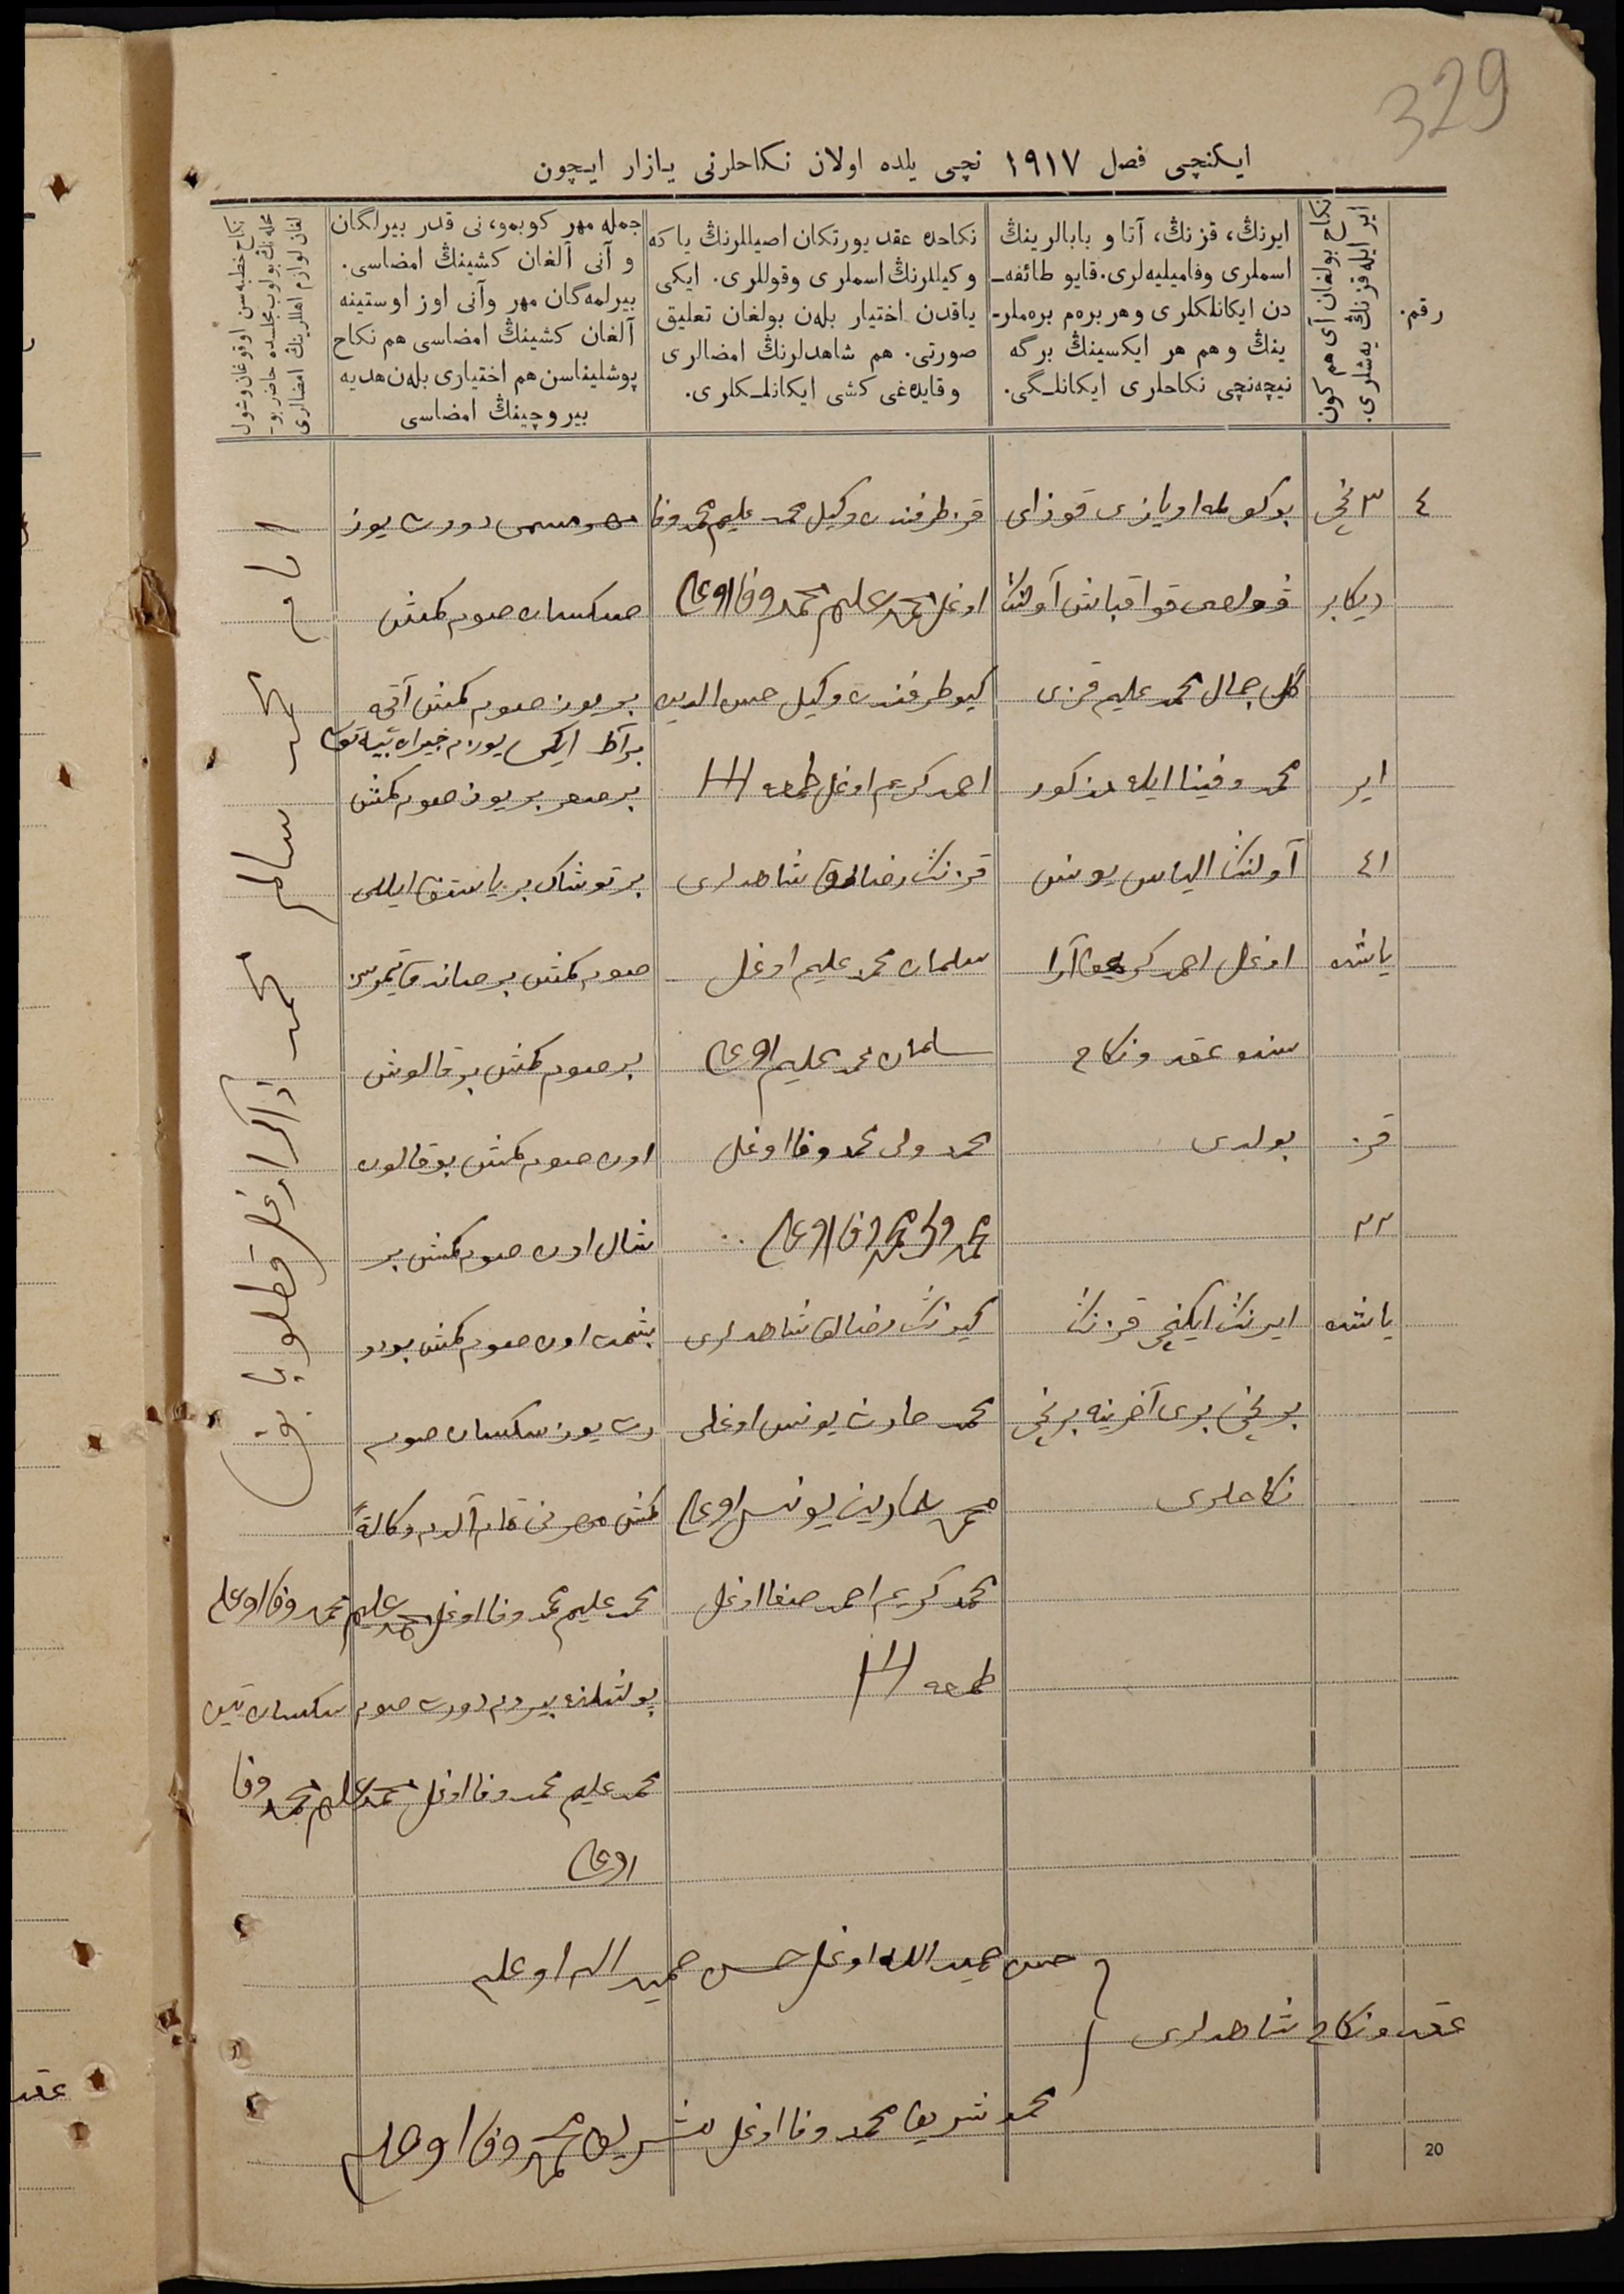 329
ایکنچی فصل ١٩١٧ نچی یلده اولان نکاحلرنی یازار ایچون
رقم.
ایر ایله قزنڭ یەشلری.
نکاح بولغان آی هم کون
ایرنڭ، قزنڭ، آتا و بابالرینڭ
اسملری وفامیلیەلری. قایو طائفه‌ـ
دن ایکانلکلری وهر برەم برەملرـ
ینڭ وهم هر ایکسینڭ برگه
نیچه‌نچی نکاحلری ایکانلـگی.
نکاحده عقد یورتکان اصیللرنڭ یا که
وکیللرنڭ اسملری وقوللری. ایکی
یاقدن اختیار بلەن بولغان تعلیق
صورتی. هم شاهدلرنڭ امضالری
وقایدەغی کشی ایکانلـکلری.
جمله مهر کوبمو، نی قدر بیرلگان
و آنی آلغان کشینڭ امضاسی.
بیرلمەگان مهر وآنی اوز اوستینه
آلغان کشینڭ امضاسی هم نکاح
پوشلیناسن هم اختیاری بلەن هدیه
بیروچینڭ امضاسی
نکاح خطبه‌سن اوقوغان وشول
محله‌نڭ بولوب مجلسده حاضر بوـ
لغان لوازم اهللرینڭ امضالری
٤
٣ نچی
دیکابر
ایر
٤١
یاشده
قز
٢٢
یاشده
بوکولمه اویازی قوزای
آولنڭ
گل جمال محمد علیم قزی
محمد وفینا ایله مذکور
آولنڭ الیاس یونس
اوغلی احمد کریم آرا
سنده عقد و نکاح
بولدی
ایرنڭ ایکنچی قزنڭ
برنچی بری آخرینه برنچی
نکاحلری
قز طرفندن وکیل محمد علیم محمد وفا
اوغلی محمد علیم محمد وفا اوغلی
کیو طرفندن وکیل حسن الدین
احمد کریم اوغلی طمغه
قزنڭ رضالق شاهدلری
سلمان محمد علیم اوغلی
سلمان محمد علیم اوغلی
محمد ولی محمد وفا اوغلی
محمد ولی محمد وفا اوغلی
کیونڭ رضالق شاهدلری
محمد یونس اوغلی
محمد یونس اوغلی
محمد کریم احمد صفا اوغلی
طمغه
دورت یوز
سکسان صوم کمش
بر یوز صوم کمش آقچه
بر آط ایکی یوز
بر یوز صوم کمش
بر توشاک بر یاستق ایللی
صوم کمش بر
بر صوم کمش بر قالوش
اون صوم کمش بر
شال اون صوم کمش بر
اون صوم کمش بو دو
رت یوز سکسان صوم
کمش مهرنی تمام آلدم وکالةً
محمد علیم محمد وفا اوغلی محمد علیم محمد وفا اوغلی
پوشلنه بیردم دورت صوم سکسان تین
محمد علیم محمد وفا اوغلی محمد علیم محمد وفا
اوغلی
امام محمد سالم محمد ذاکر اوغلی
عقد و نکاح شاهدلری
حسن حمید الله اوغلی حسن حمید الله اوغلی
محمد شریف محمد وفا اوغلی شریف محمد وفا اوغلی
20
عقد